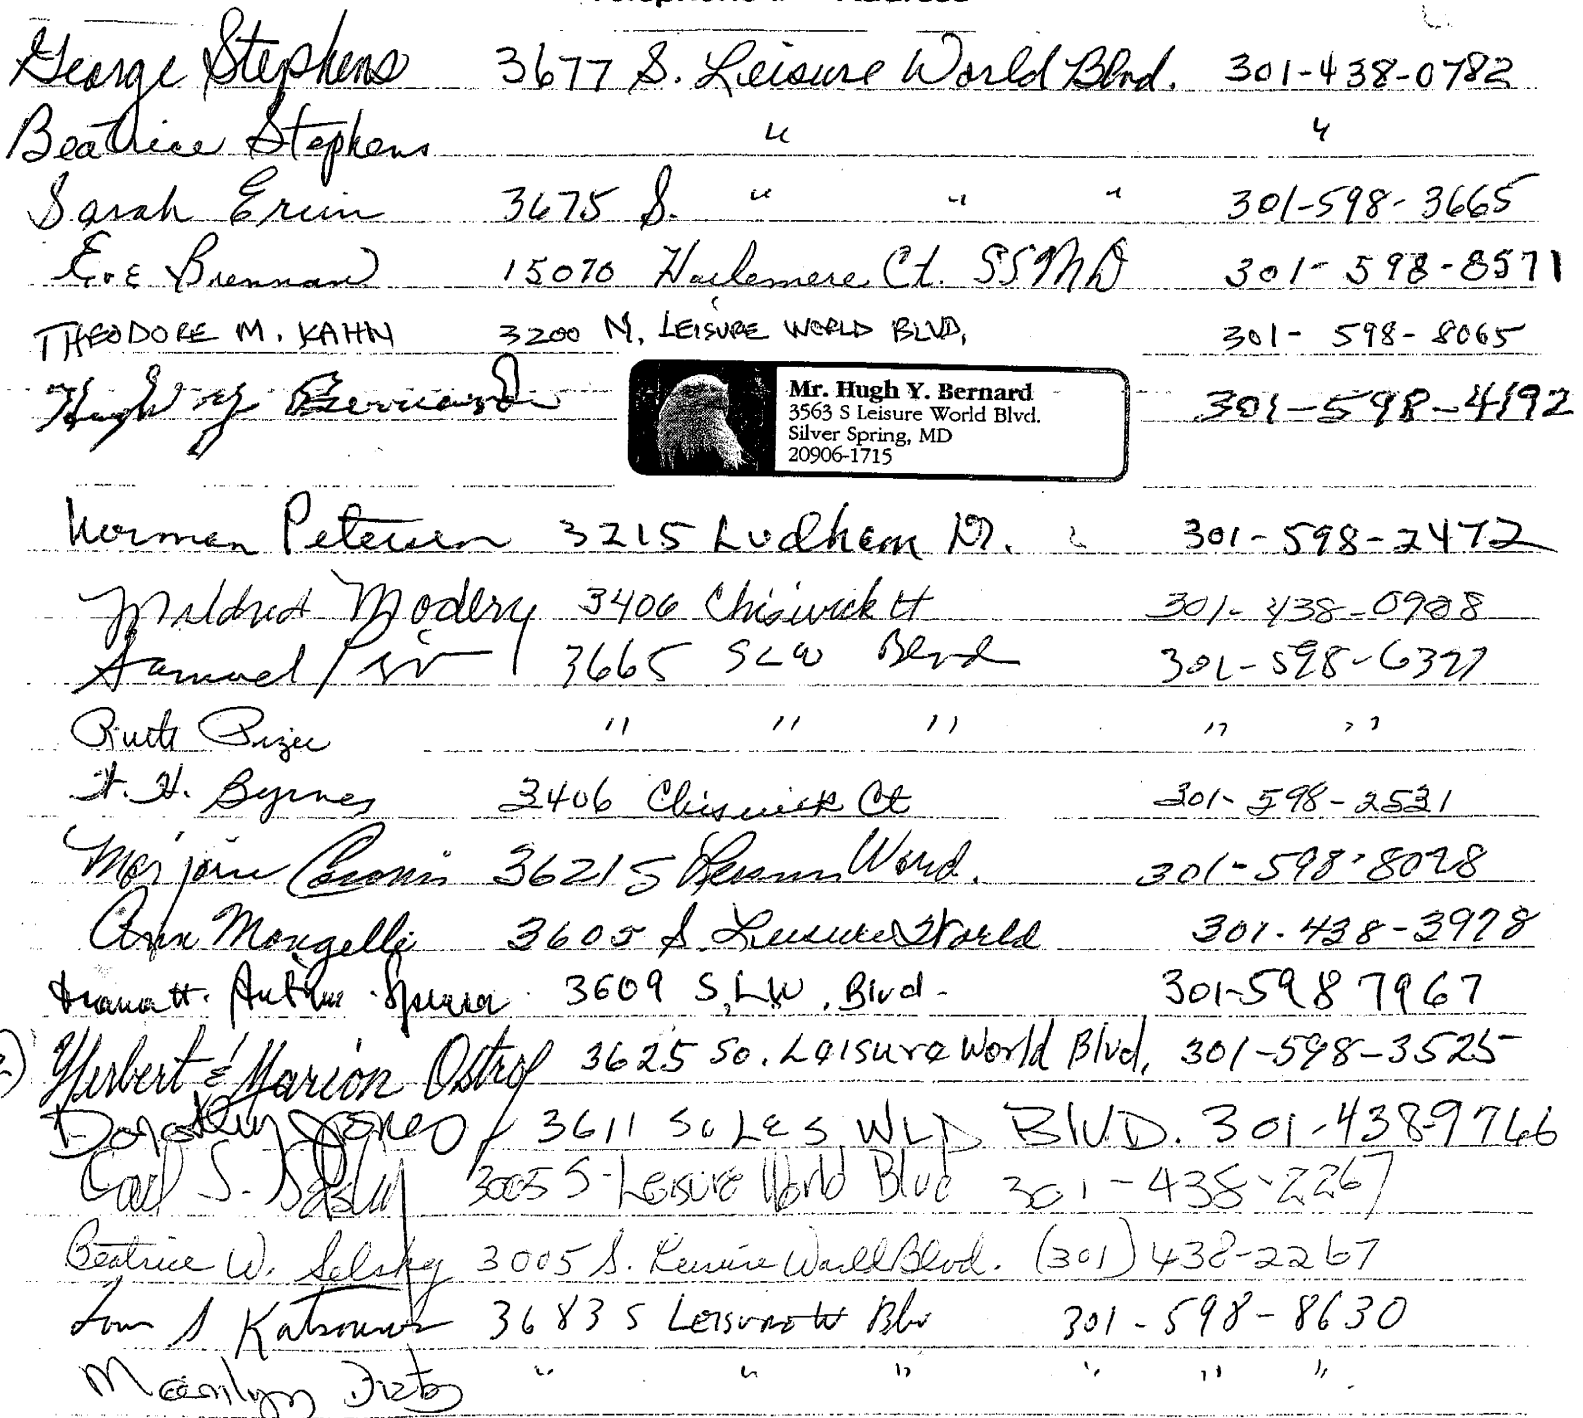 Telephone # Address
George Stephens 3677 S. Leisure World Blvd. 301-438-0782
Beatrice Stephens " "
Sarah 3675 S. " " " 301-598-3665
Eve Brennan 15070 Ct. SSMD 301-598-8571
THEODORE M. KAHN 3200 N. LEISURE WORLD BLVD. 301-598-8065
Hugh Y Bernard 301-598-4192
Mr. Hugh Y. Bernard
3563 S Leisure World Blvd.
Silver Spring, MD
20906-1715
Norman Petersen 3215 Ludham Dr. 301-598-2472
Mildred Modery 3406 Chiswick Ct 301-438-0908
Samuel 3665 SLW Blvd 301-598-6327
Ruth " " " " "
H. Byrnes 3406 Chiswick Ct 301-598-2531
Marjorie 3621 S World. 301-598-8028
Ann Mongelli 3605 S. Leisure World 301-438-3978
3609 S.LW. Blvd. 301-598 7967
Herbert & Marion Ostrof 3625 So. Leisure World Blvd, 301-598-3525
Dorothy Jones 3611 So LES WLD BLVD. 301-438-9766
S. 3005 S-Leisure World Blvd 301-438-2267
Beatrice W. Selsky 3005 S. Leisure World Blvd. (301) 438-2267
3683 S Leisure W Blv 301-598-8630
" " " " " "